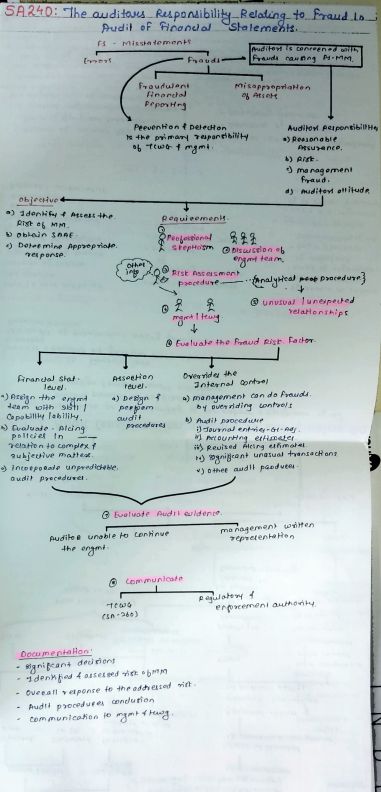 SA240: The auditors Responsibility Relating to Fraud in
Audit of Financial Statements.
FS - Misstatements
Errors
Frauds
Auditor is concerned with
Frauds causing FS-MM.
Fraudulent
Financial
Reporting
Misappropriation
of Assets
Prevention & Detection
is the primary responsibility
of TCWG & mgmt.
Auditors Responsibilities
a) Reasonable
Assurance.
b) Risk.
c) management
Fraud.
d) Auditors attitude.
Objective
a) Identify & Assess the
Risk of MM.
b) Obtain SAAE.
c) Determine Appropriate
response.
Requirements
① Professional
skepticism
② Discussion of
engmt team.
Other
info
③ Risk Assessment
procedure
{Analytical procedure}
mgmt | tcwg
⑤ unusual | unexpected
relationships
⑥ Evaluate the Fraud Risk Factor.
Financial Stat-
level.
a) Assign the engmt
team with skill /
Capability /ability.
b) Evaluate - A/cing
policies in
relation to complex &
subjective matters.
c) incorporate unpredictable
audit procedures.
Assertion
level.
a) Design &
perform
audit
procedures
Overrides the
Internal control
a) management can do frauds
by overriding controls
b) Audit procedure
i) Journal entries-GL-Adj.
ii) Accounting estimates
iii) Revised A/cing estimates
iv) Significant unusual transactions
v) Other audit procedures.
⑦ Evaluate Audit evidence.
Auditor unable to continue
the engmt.
management written
representation
⑧ Communicate
TCWG
(SA-260)
Regulatory &
enforcement authority.
Documentation:
- Significant decisions
- Identified & assessed risk of MM
- Overall response to the addressed risk.
- Audit procedures conclusion
- Communication to mgmt & tcwg.